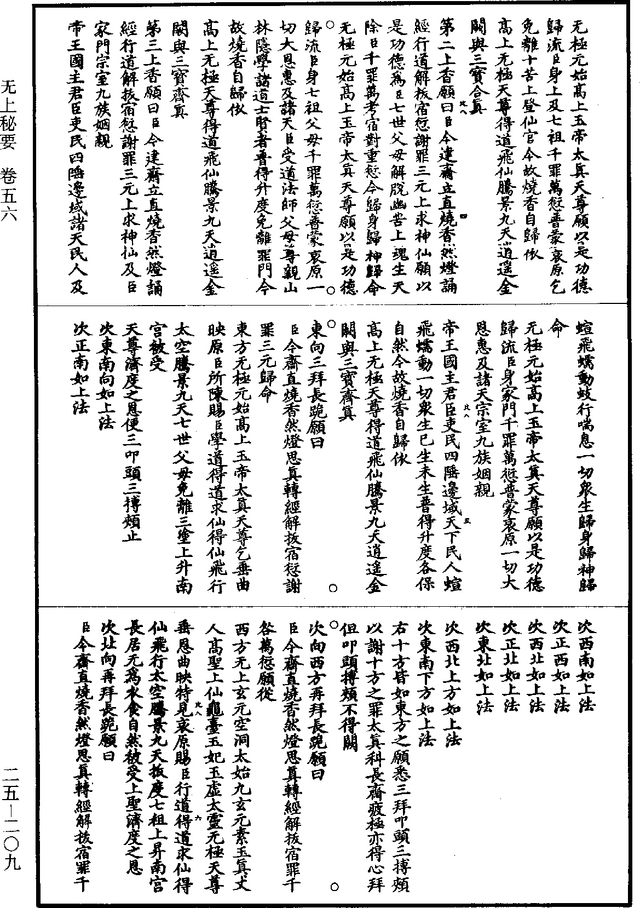 无上秘要 卷五六
二五—二〇九
无極元始高上玉帝太真天尊願以是功德
歸流臣身上及七祖千罪萬愆普蒙哀原乞
免離十苦上登仙官今故燒香自歸依
高上无極天尊得道飛仙騰景九天逍遥金
闕與三寶合真
第二上香願曰臣今建齋立直燒香然燈誦
經行道解拔宿愆謝罪三元上求神仙願以
是功德爲臣七世父母解脫幽苦上魂生天
除臣千罪萬考宿對重愆今歸身歸神歸命
无極元始高上玉帝太真天尊願以是功德
歸流臣身七祖父母千罪萬愆普蒙哀原一
切大恩惠及諸天臣受道法師父母尊親山
林隱學諸道士賢者普得升度免離罪門今
故燒香自歸依
高上无極天尊得道飛仙騰景九天逍遥金
闕與三寶齋真
第三上香願曰臣今建齋立直燒香然燈誦
經行道解拔宿愆謝罪三元上求神仙及臣
家門宗室九族姻親
帝王國主君臣吏民四陲邊域諸天民人及
蝖飛蠕動蚑行喘息一切衆生歸身歸神歸
命
无極元始高上玉帝太真天尊願以是功德
歸流臣身家門千罪萬愆普蒙哀原一切大
恩惠及諸天宗室九族姻親
帝王國主君臣吏民四陲邊域天下民人蝖
飛蠕動一切衆生已生未生普得升度各保
自然今故燒香自歸依
高上无極天尊得道飛仙騰景九天逍遥金
闕與三寶齋真
東向三拜長跪願曰
臣今齋直燒香然燈思真轉經解拔宿愆謝
罪三元歸命
東方无極元始高上玉帝太真天尊乞垂曲
映原臣所陳賜臣學道得道求仙得仙飛行
太空騰景九天七世父母免離三塗上升南
宫被受
天尊濟度之恩便三叩頭三搏頰止
次東南向如上法
次正南如上法
次西南如上法
次正西如上法
次西北如上法
次正北如上法
次東北如上法
次西北上方如上法
次東南下方如上法
右十方皆如東方之願悉三拜叩頭三搏頰
以謝十方之罪太真科長齋疲極亦得心拜
但叩頭搏頰不得闕
次向西方再拜長跪願曰
臣今齋直燒香然燈思真轉經解拔宿罪千
咎萬愆願從
西方无上玄元空洞太始九玄元素玉真丈
人高聖上仙龜臺玉妃玉虛太靈元極天尊
垂恩曲映特見哀原賜臣行道得道求仙得
仙飛行太空騰景九天拔度七祖上昇南宫
長居元爲衣食自然被受上聖濟度之恩
次北向再拜長跪願曰
臣今齋直燒香然燈思真轉經解拔宿罪千